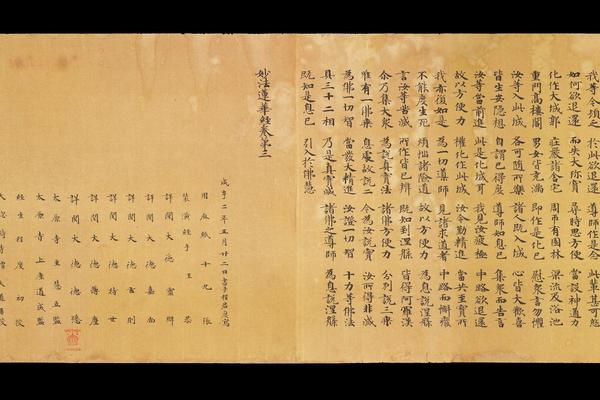 我等今頓乏 於此欲退還 導師作是念 此輩甚可愍
如何欲退還 而失大珎寶 尋時思方便 當設神通力
化作大城郭 莊嚴諸舍宅 周帀有園林 渠流及浴池
重門高樓閣 男女皆充滿 即作是化已 慰衆言勿懼
汝等入此城 各可隨所樂 諸人既入城 心皆大歡喜
皆生安隱想 自謂已得度 導師知息已 集衆而告言
汝等當前進 此是化城耳 我見汝疲極 中路欲退還
故以方便力 權化作此城 汝今勤精進 當共至寶所
我亦復如是 為一切導師 見諸求道者 中路而懈癈
不能度生死 煩惱諸險道 故以方便力 為息說涅槃
言汝等苦滅 所作皆已辦 既知到涅槃 皆得阿羅漢
尒乃集大衆 為說真實法 諸佛方便力 分別說三乘
唯有一佛乘 息處故說二 今為汝說實 汝所得非滅
為佛一切智 當發大精進 汝證一切智 十力等佛法
具三十二相 乃是真實滅 諸佛之導師 為息說涅槃
既知是息已 引入於佛慧
妙法蓮華經卷第三
咸亨二年五月廿二日書手程君度寫
用麻紙十九張
裝潢經手王恭
詳閱大德靈辯
詳閱大德嘉尚
詳閱大德玄則
詳閱大德持世
詳閱大德薄塵
詳閱大德德
太原寺主慧立監
太原寺上座道成監
經生程度初校